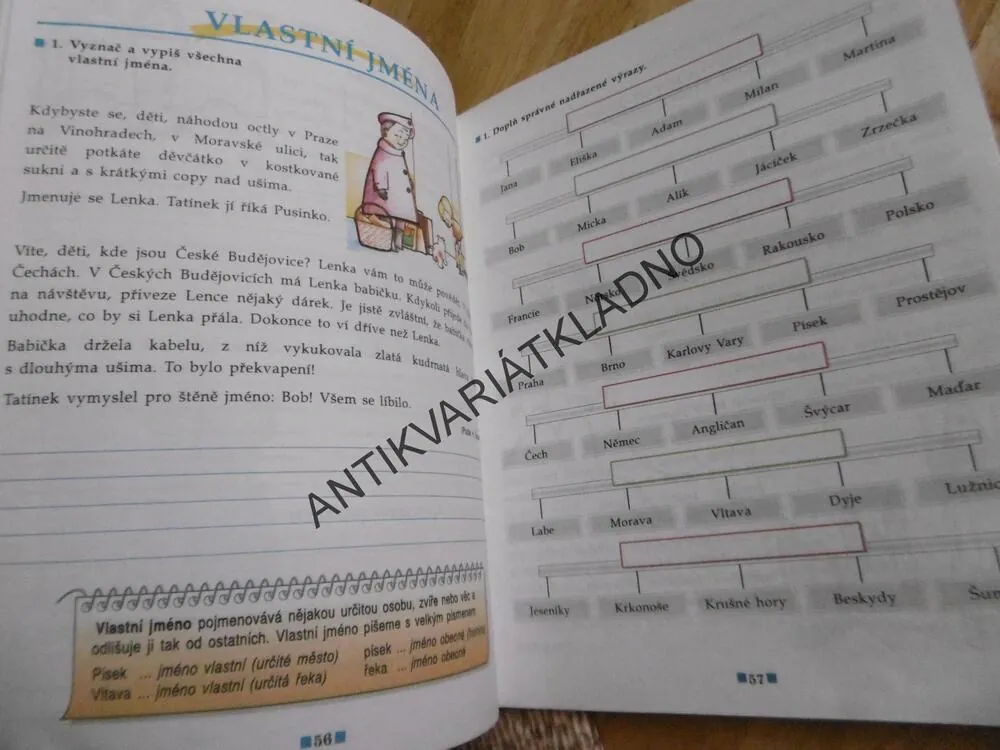 VLASTNÍ JMÉNA
1. Vyznač a vypiš všechna
vlastní jména.
Kdybyste se, děti, náhodou octly v Praze
na Vinohradech, v Moravské ulici, tak
určitě potkáte děvčátko v kostkované
sukni a s krátkými copy nad ušima.
Jmenuje se Lenka. Tatínek jí říká Pusinko.
Víte, děti, kde jsou České Budějovice? Lenka vám to může
Čechách. V Českých Budějovicích má Lenka babičku. Kdykoli přijede
na návštěvu, přiveze Lence nějaký dárek. Je jistě zvláštní, že babička
uhodne, co by si Lenka přála. Dokonce to ví dříve než Lenka.
Babička držela kabelu, z níž vykukovala zlatá kudrnatá
s dlouhýma ušima. To bylo překvapení!
Tatínek vymyslel pro štěně jméno: Bob! Všem se líbilo.
Vlastní jméno pojmenovává nějakou určitou osobu, zvíře nebo věc a
odlišuje ji tak od ostatních. Vlastní jméno píšeme s velkým písmenem
Písek ... jméno vlastní (určité město) písek ... jméno obecné
Vltava ... jméno vlastní (určitá řeka) řeka ... jméno obecné
56
1. Doplň správné nadřazené výrazy.
Jana Eliška Adam Milan Martina
Bob Micka Alík Jáčíček Zrzečka
Francie Rakousko Polsko
Praha Brno Karlovy Vary Písek Prostějov
Čech Němec Angličan Švýcar Maďar
Labe Morava Vltava Dyje
Jeseníky Krkonoše Krušné hory Beskydy
57
ANTIKVARIÁTKLADNO